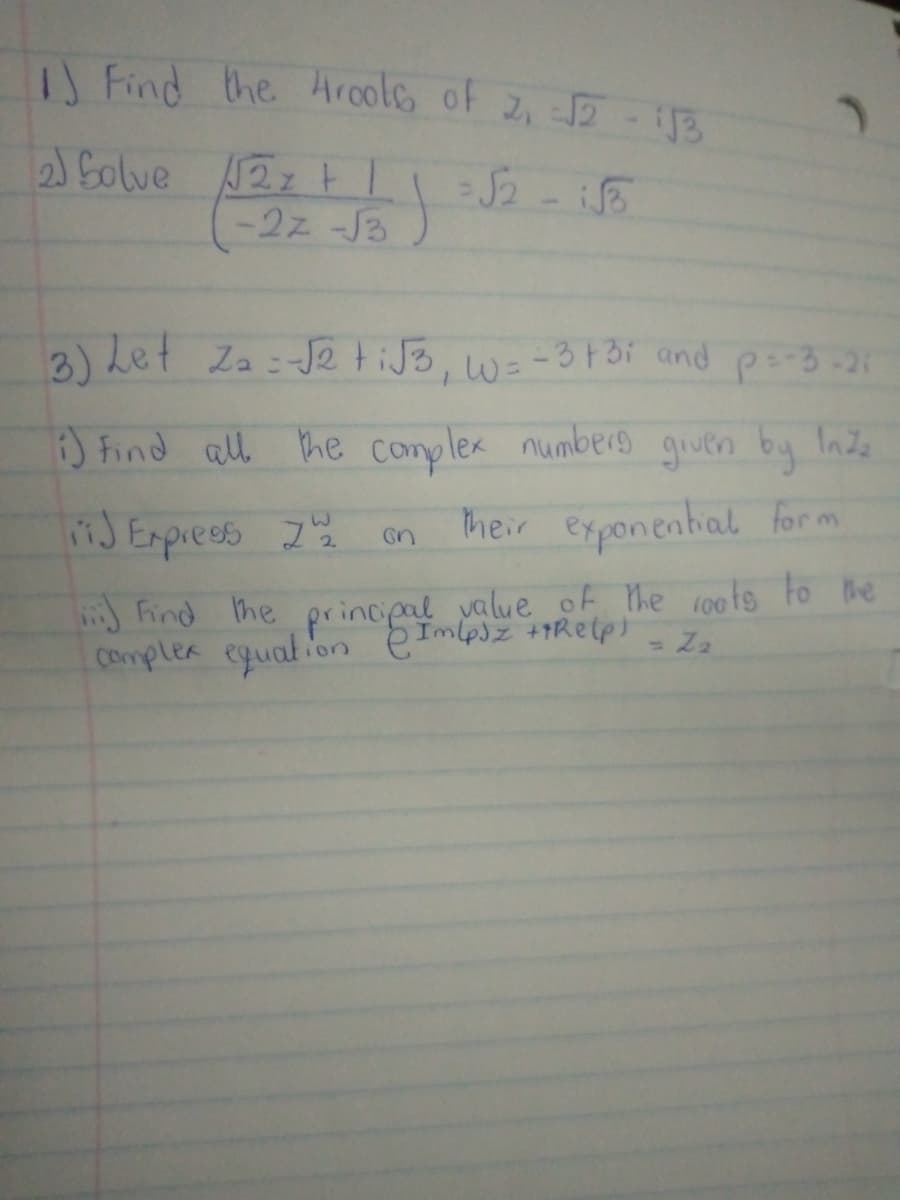 1) Find the 4roots of z₁ = √2 - i√3
2) Solve (√2z + 1 / -2z - √3) = √2 - i√3
3) Let Z₂ = -√2 + i√3, w = -3 + 3i and p = -3 - 2i
i) Find all the complex numbers given by ln Z₂
ii) Express Z₂^w on their exponential form
iii) Find the principal value of the roots to the
complex equation e^(Im(p)z + iRe(p)) = Z₂